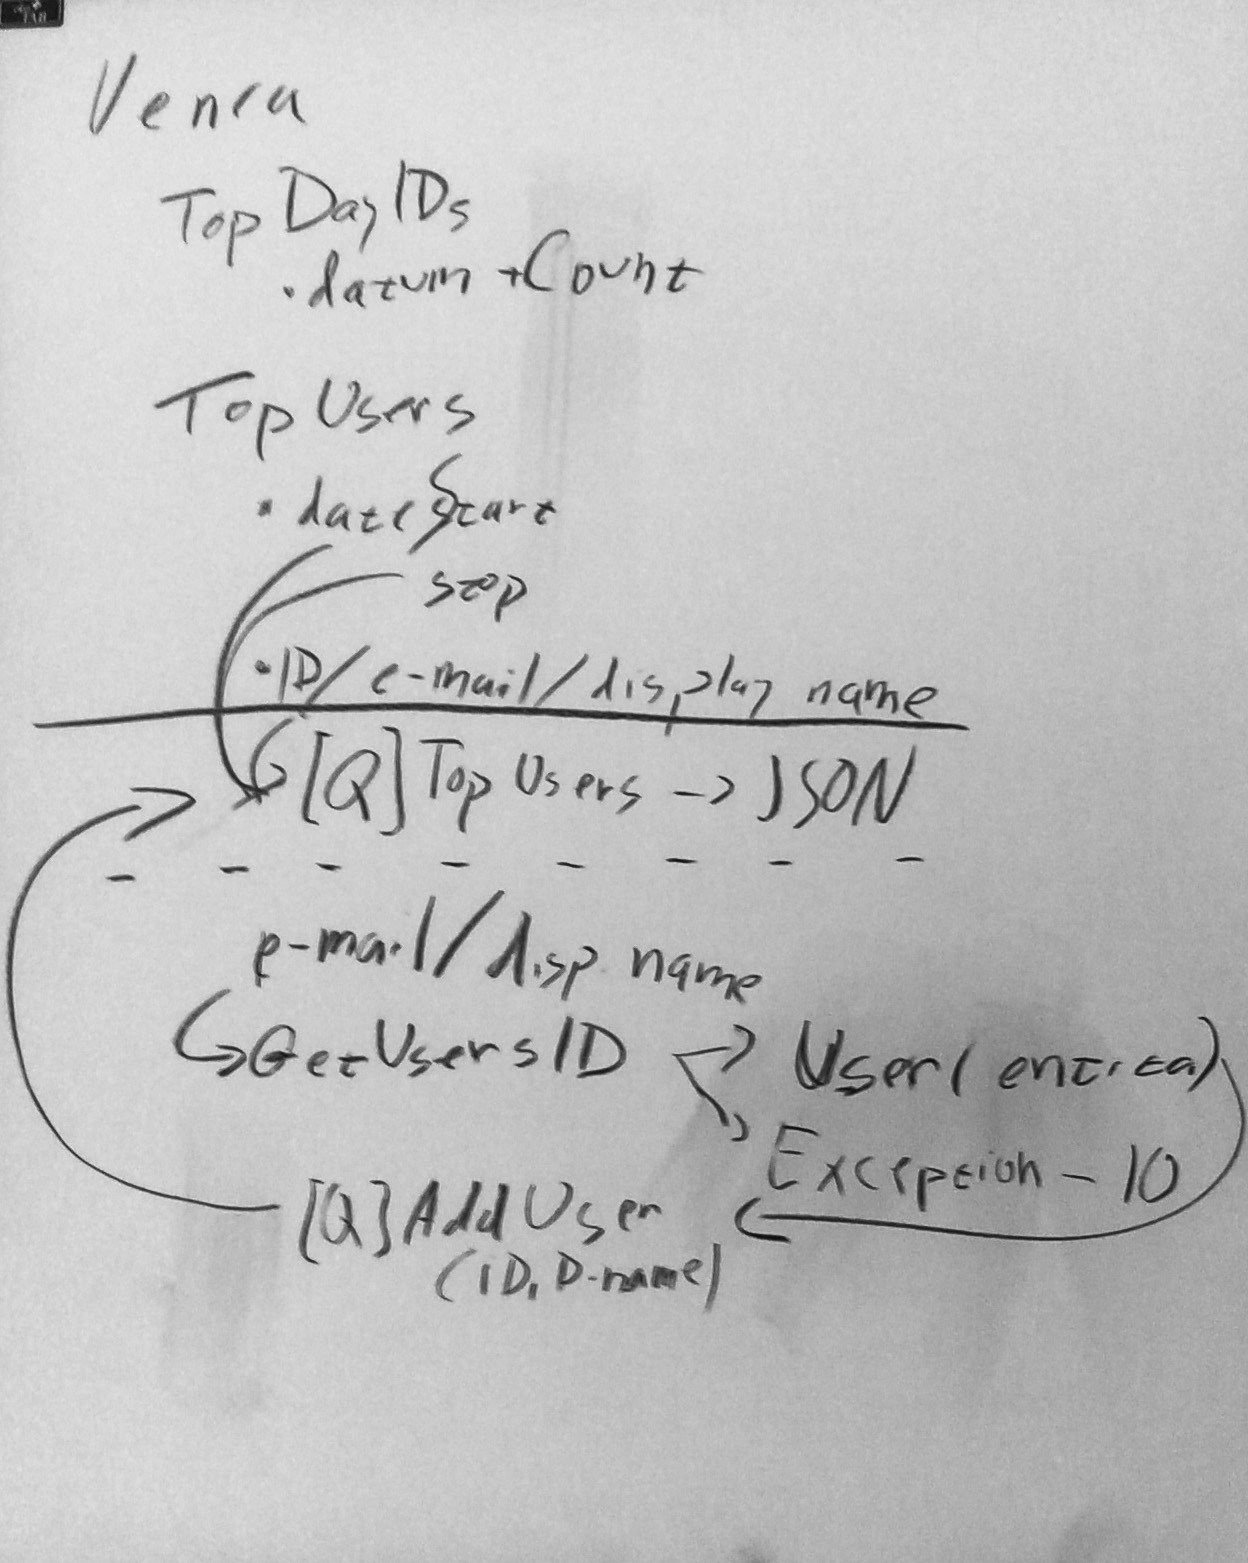 Venca
Top Day IDs
• datum + Count
Top Users
• date Start
stop
• ID / e-mail / display name
[Q] Top Users -> JSON
e-mail / disp. name
GetUsersID -> User (entita)
-> Exception - 10
[Q] Add User
(ID, D-name)